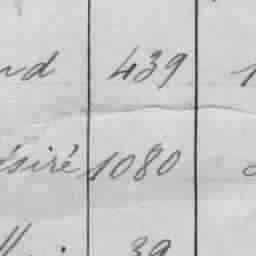 nd 439 1
ésiré 1080
39